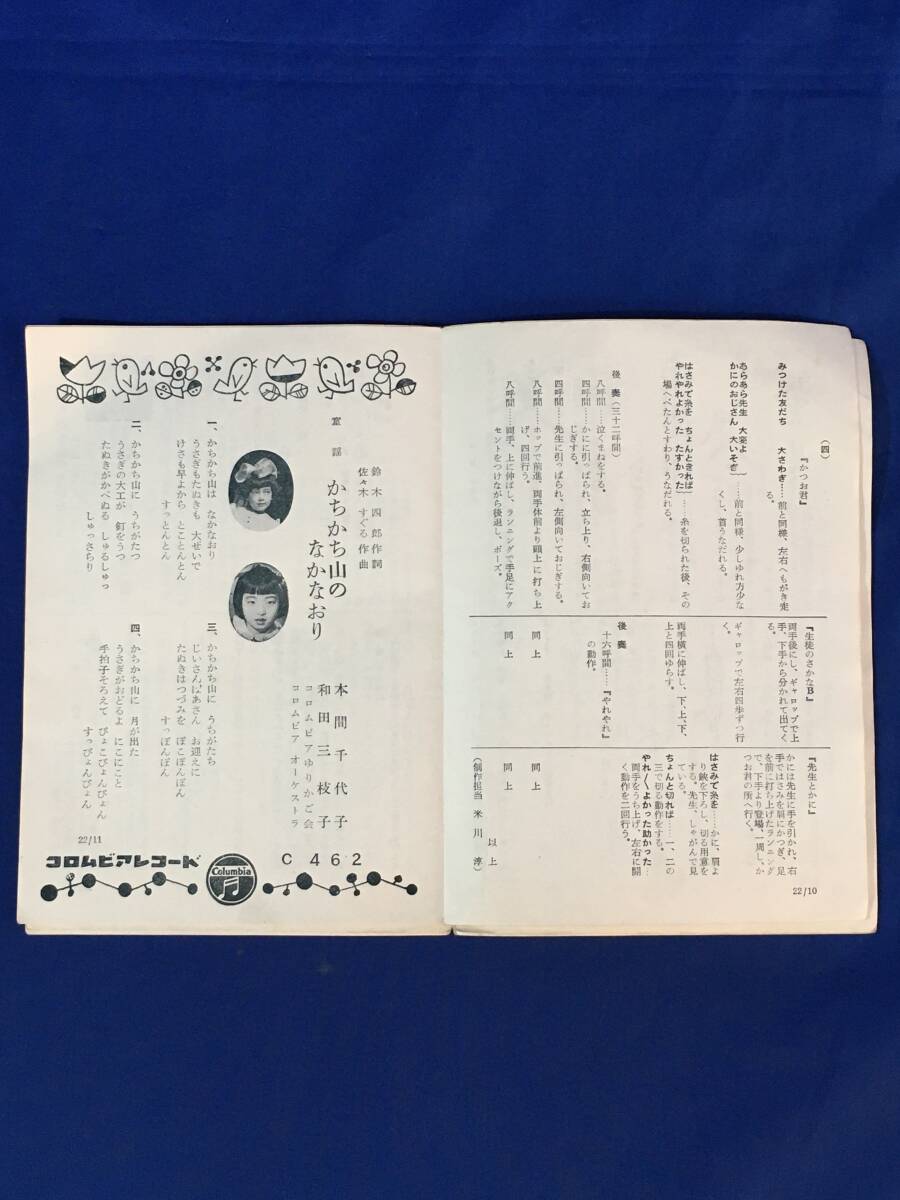 (四)
『かつお君』
みつけた友だち 大さわぎ……前と同様、左右へもがき走
る。
あらあら先生 大変よ
かにのおじさん 大いそぎ
……前と同様、少しゆれ方少な
くし、首うなだれる。
はさみで糸を ちょんときれば
やれやれよかった たすかった
……糸を切られた後、その
場へぺたんとすわり、うなだれる。
後奏(三十二呼間)
八呼間……泣くまねをする。
四呼間……かにに引っぱられ、立ち上り、右側向いてお
じぎする。
四呼間……先生に引っぱられ、左側向いておじぎする。
八呼間……ホップで前進、両手体前より頭上に打ち上
げ、四回行う。
八呼間……両手、上に伸ばし、ランニングで手足にアク
セントをつけながら後退し、ポーズ。
『生徒のさかなB』
両手後にし、ギャロップで上
手、下手から分かれて出てく
る。
ギャロップで左右四歩ずつ行
く。
両手横に伸ばし、下、上、下、
上と四回ゆらす。
後奏
十六呼間……『やれやれ』
の動作。
同上
同上
『先生とかに』
かには先生に手を引かれ、右
手ではさみを肩にかつぎ、足
を前に打ち上げたランニング
で、下手より登場、一周し、か
つお君の所へ行く。
はさみで糸を……かに、肩よ
り鋏を下ろし、切る用意を
する。先生、しゃがんで見
ている。
ちょんと切れば……一、二の
三で切る動作をする。
やれ〳〵よかった助かった…
両手をうち上げ、左右に開
く動作を二回行う。
同上
同上
以上
(制作担当 米川 淳)
22/10
童謡
かちかち山の
なかなおり
鈴木四郎 作詞
佐々木すぐる 作曲
本間千代子
和田三枝子
コロムビアゆりかご会
コロムビアオーケストラ
一、かちかち山は なかなおり
うさぎもたぬきも 大ぜいで
けさも早よから とことんとん
すっとんとん
二、かちかち山に うちがたつ
うさぎの大工が 釘をうつ
たぬきがかべぬる しゅるしゅっ
しゅっさらり
三、かちかち山に うちがたち
じいさんばあさん お迎えに
たぬきはつづみを ぽこぽんぽん
すっぽんぽん
四、かちかち山に 月が出た
うさぎがおどるよ にこにこと
手拍子そろえて ぴょこぴょんぴょん
すっぴょんぴょん
22/11
コロムビアレコード
Columbia
C 462